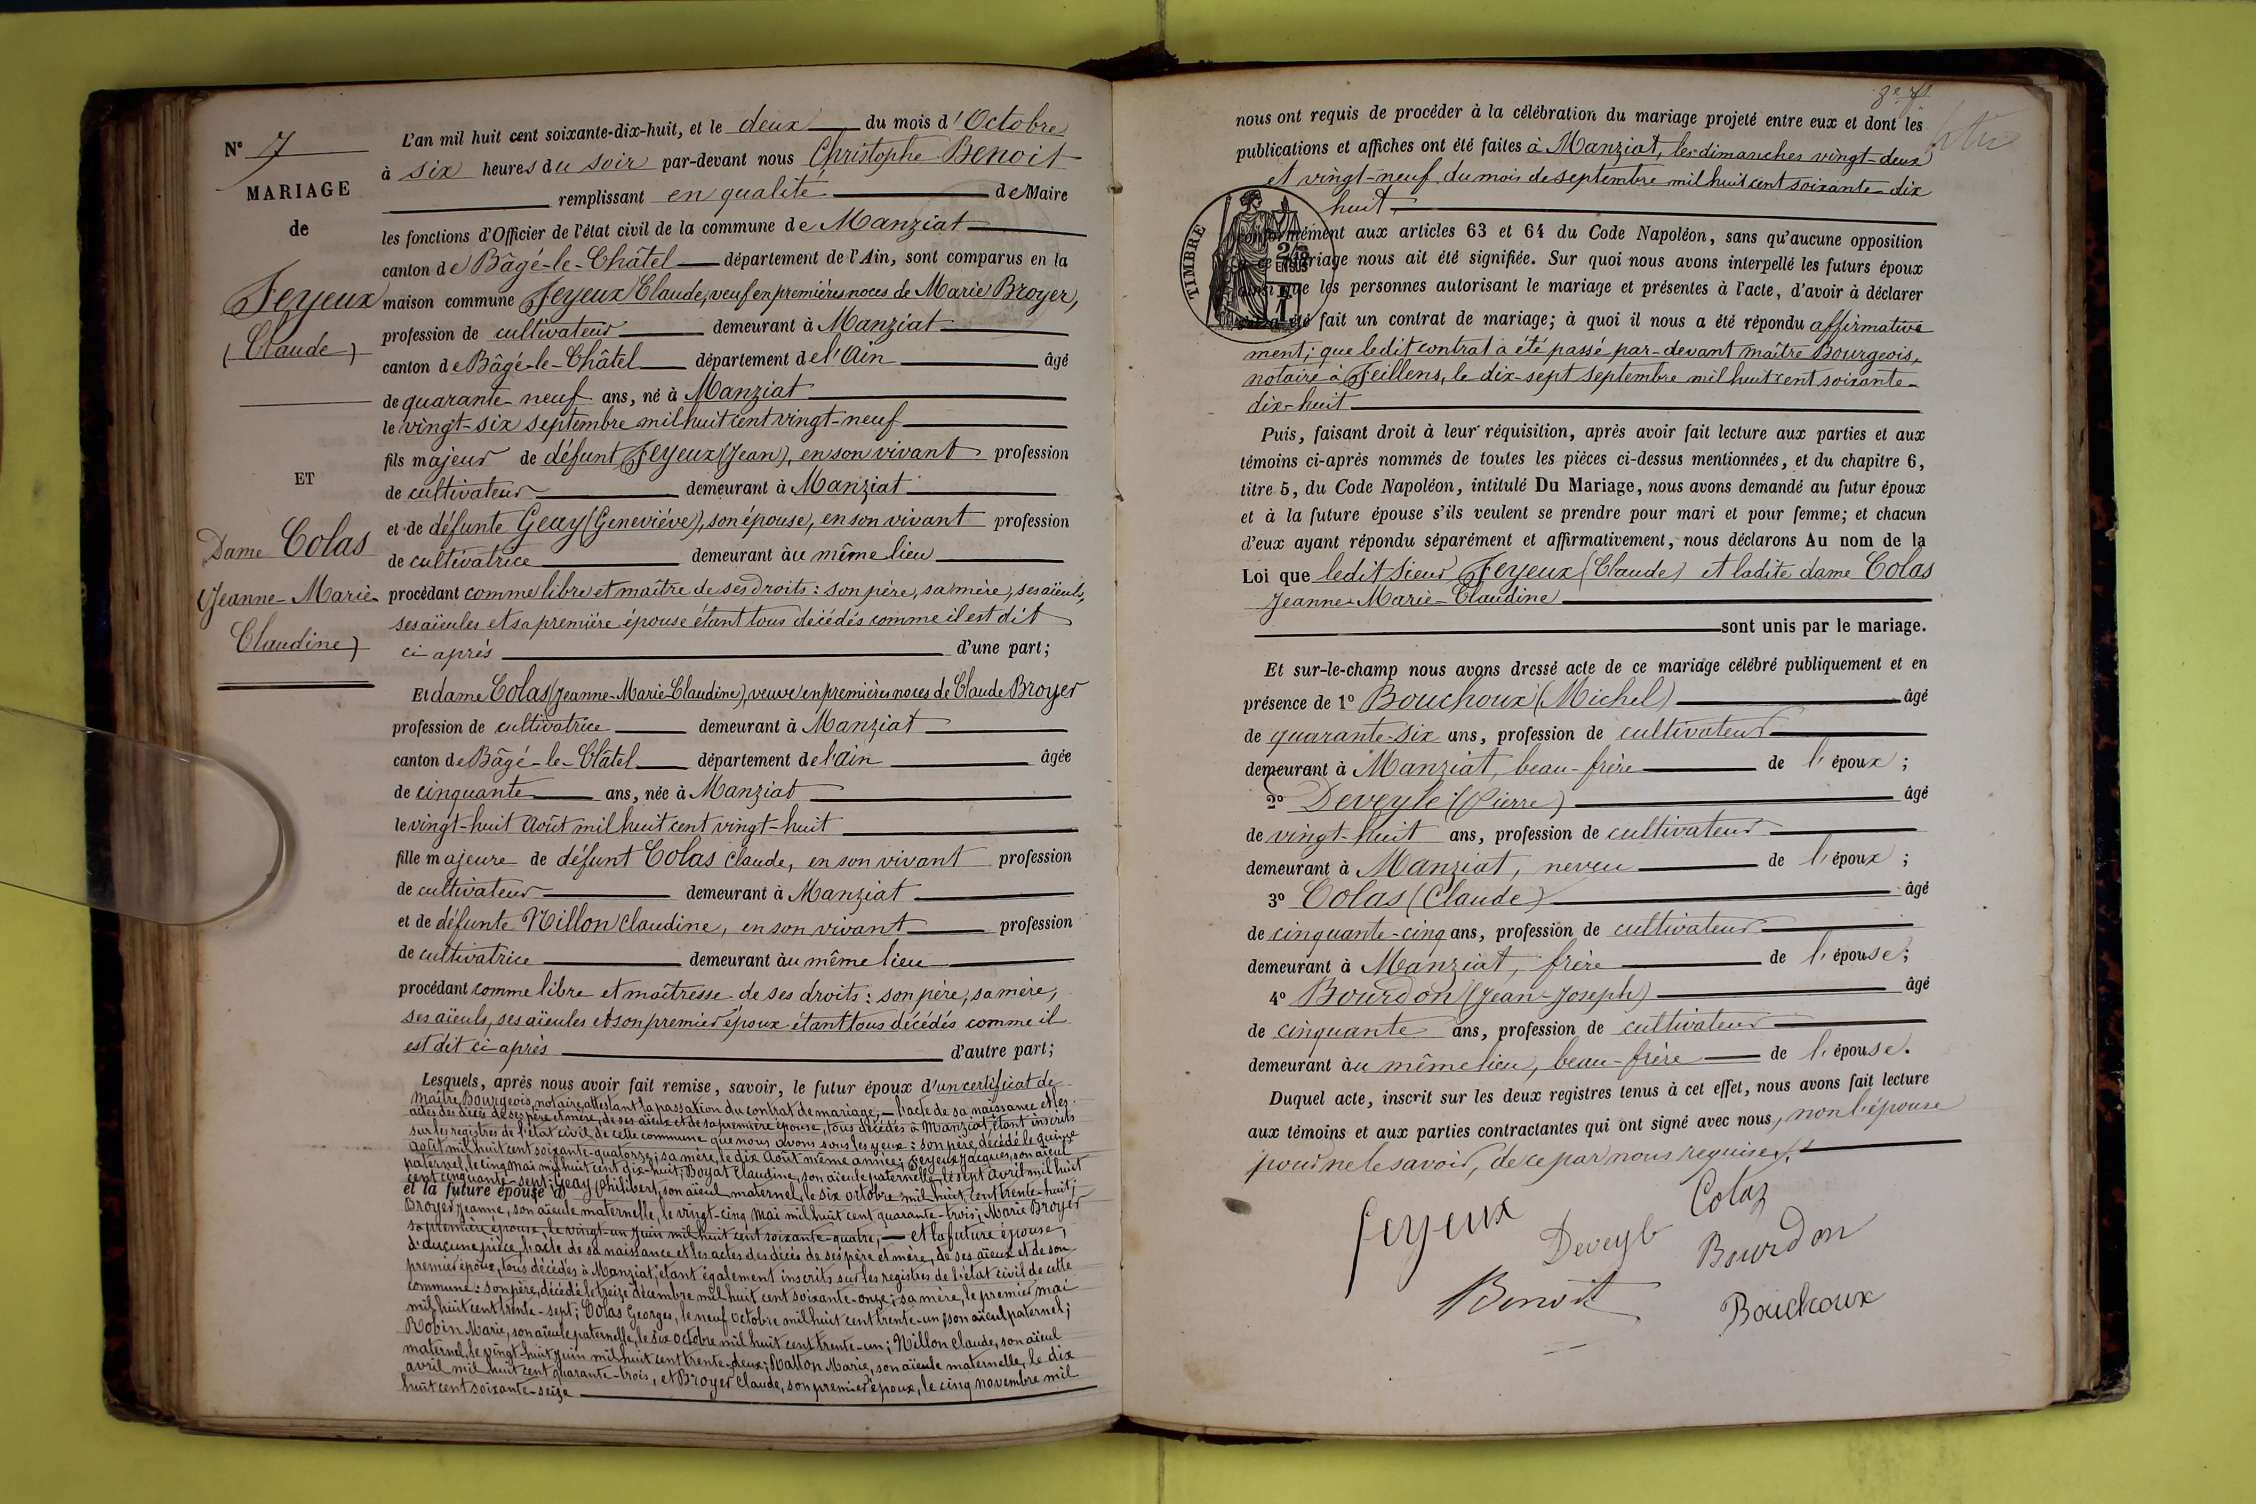 N° 7
MARIAGE
de
Feyeux
(Claude)
ET
Dame Colas
(Jeanne-Marie-
Claudine)
L'an mil huit cent soixante-dix-huit, et le deux du mois d'Octobre
à six heures du soir par-devant nous Christophe Benoit
remplissant en qualité de Maire
les fonctions d'Officier de l'état civil de la commune de Manziat
canton de Bâgé-le-Châtel département de l'Ain, sont comparus en la
maison commune Feyeux Claude, veuf en premières noces de Marie Broyer,
profession de cultivateur demeurant à Manziat
canton de Bâgé-le-Châtel département de l'Ain âgé
de quarante-neuf ans, né à Manziat
le vingt-six septembre mil huit cent vingt-neuf
fils majeur de défunt Feyeux (Jean), en son vivant profession
de cultivateur demeurant à Manziat
et de défunte Geay (Geneviève), son épouse, en son vivant profession
de cultivatrice demeurant au même lieu
procédant comme libre et maître de ses droits : son père, sa mère, ses aïeuls,
ses aïeules et sa première épouse étant tous décédés comme il est dit
ci après d'une part;
Et dame Colas (Jeanne-Marie-Claudine), veuve en premières noces de Claude Broyer
profession de cultivatrice demeurant à Manziat
canton de Bâgé-le-Châtel département de l'Ain âgée
de cinquante ans, née à Manziat
le vingt-huit Août mil huit cent vingt-huit
fille majeure de défunt Colas Claude, en son vivant profession
de cultivateur demeurant à Manziat
et de défunte Nillon Claudine, en son vivant profession
de cultivatrice demeurant au même lieu
procédant comme libre et maîtresse de ses droits : son père, sa mère,
ses aïeuls, ses aïeules et son premier époux étant tous décédés comme il
est dit ci après d'autre part;
Lesquels, après nous avoir fait remise, savoir, le futur époux d'un certificat de
Maître Bourgeois, notaire, attestant la passation du contrat de mariage, — l'acte de sa naissance et les
actes des décès de ses père et mère, de ses aïeux et de sa première épouse, tous décédés à Manziat, étant inscrits
sur les registres de l'état civil de cette commune que nous avons sous les yeux : son père, décédé le quinze
août mil huit cent soixante-quatorze; sa mère, le dix Août même année; Feyeux Jacques, son aïeul
paternel, le cinq mai mil huit cent dix-huit; Boyat Claudine, son aïeule paternelle, le sept avril mil huit
cent cinquante-sept; Geay Philibert, son aïeul maternel, le six octobre mil huit cent trente-huit;
et la future épouse d
Broyer Jeanne, son aïeule maternelle, le vingt-cinq Mai mil huit cent quarante-trois; Marie Broyer
sa première épouse, le vingt-un Juin mil huit cent soixante-quatre, — et la future épouse,
d'aucune pièce, l'acte de sa naissance et les actes des décès de ses père et mère, de ses aïeux et de son
premier époux, tous décédés à Manziat, étant également inscrits sur les registres de l'état civil de cette
commune : son père, décédé le treize décembre mil huit cent soixante-onze; sa mère, le premier mai
mil huit cent trente-sept; Colas Georges, le neuf octobre mil huit cent trente-un, son aïeul paternel;
Robin Marie, son aïeule paternelle, le six octobre mil huit cent trente-un; Nillon Claude, son aïeul
maternel, le vingt-huit Juin mil huit cent trente-deux; Marie, son aïeule maternelle, le dix
avril mil huit cent quarante-trois, et Broyer Claude, son premier époux, le cinq novembre mil
huit cent soixante-seize
nous ont requis de procéder à la célébration du mariage projeté entre eux et dont les
publications et affiches ont été faites à Manziat, les dimanches vingt-deux
et vingt-neuf du mois de septembre mil huit cent soixante-dix
huit,
TIMBRE
conformément aux articles 63 et 64 du Code Napoléon, sans qu'aucune opposition
à ce mariage nous ait été signifiée. Sur quoi nous avons interpellé les futurs époux
ainsi que les personnes autorisant le mariage et présentes à l'acte, d'avoir à déclarer
s'il a été fait un contrat de mariage; à quoi il nous a été répondu affirmative
ment; que ledit contrat a été passé par-devant maître Bourgeois,
notaire à Feillens, le dix-sept septembre mil huit cent soixante-
dix-huit
Puis, faisant droit à leur réquisition, après avoir fait lecture aux parties et aux
témoins ci-après nommés de toutes les pièces ci-dessus mentionnées, et du chapitre 6,
titre 5, du Code Napoléon, intitulé Du Mariage, nous avons demandé au futur époux
et à la future épouse s'ils veulent se prendre pour mari et pour femme; et chacun
d'eux ayant répondu séparément et affirmativement, nous déclarons Au nom de la
Loi que ledit sieur Feyeux (Claude) et ladite dame Colas
Jeanne-Marie-Claudine
sont unis par le mariage.
Et sur-le-champ nous avons dressé acte de ce mariage célébré publiquement et en
présence de 1° Bouchoux (Michel) âgé
de quarante-six ans, profession de cultivateur
demeurant à Manziat, beau-frère de l'époux;
2° Deveyle (Pierre) âgé
de vingt-huit ans, profession de cultivateur
demeurant à Manziat, neveu de l'époux;
3° Colas (Claude) âgé
de cinquante-cinq ans, profession de cultivateur
demeurant à Manziat, frère de l'épouse;
4° Bourdon (Jean-Joseph) âgé
de cinquante ans, profession de cultivateur
demeurant au même lieu, beau-frère de l'épouse.
Duquel acte, inscrit sur les deux registres tenus à cet effet, nous avons fait lecture
aux témoins et aux parties contractantes qui ont signé avec nous, non l'épouse
pour ne le savoir, de ce par nous requise.
Feyeux
Colas
Deveyle
Bourdon
Benoit
Bouchoux